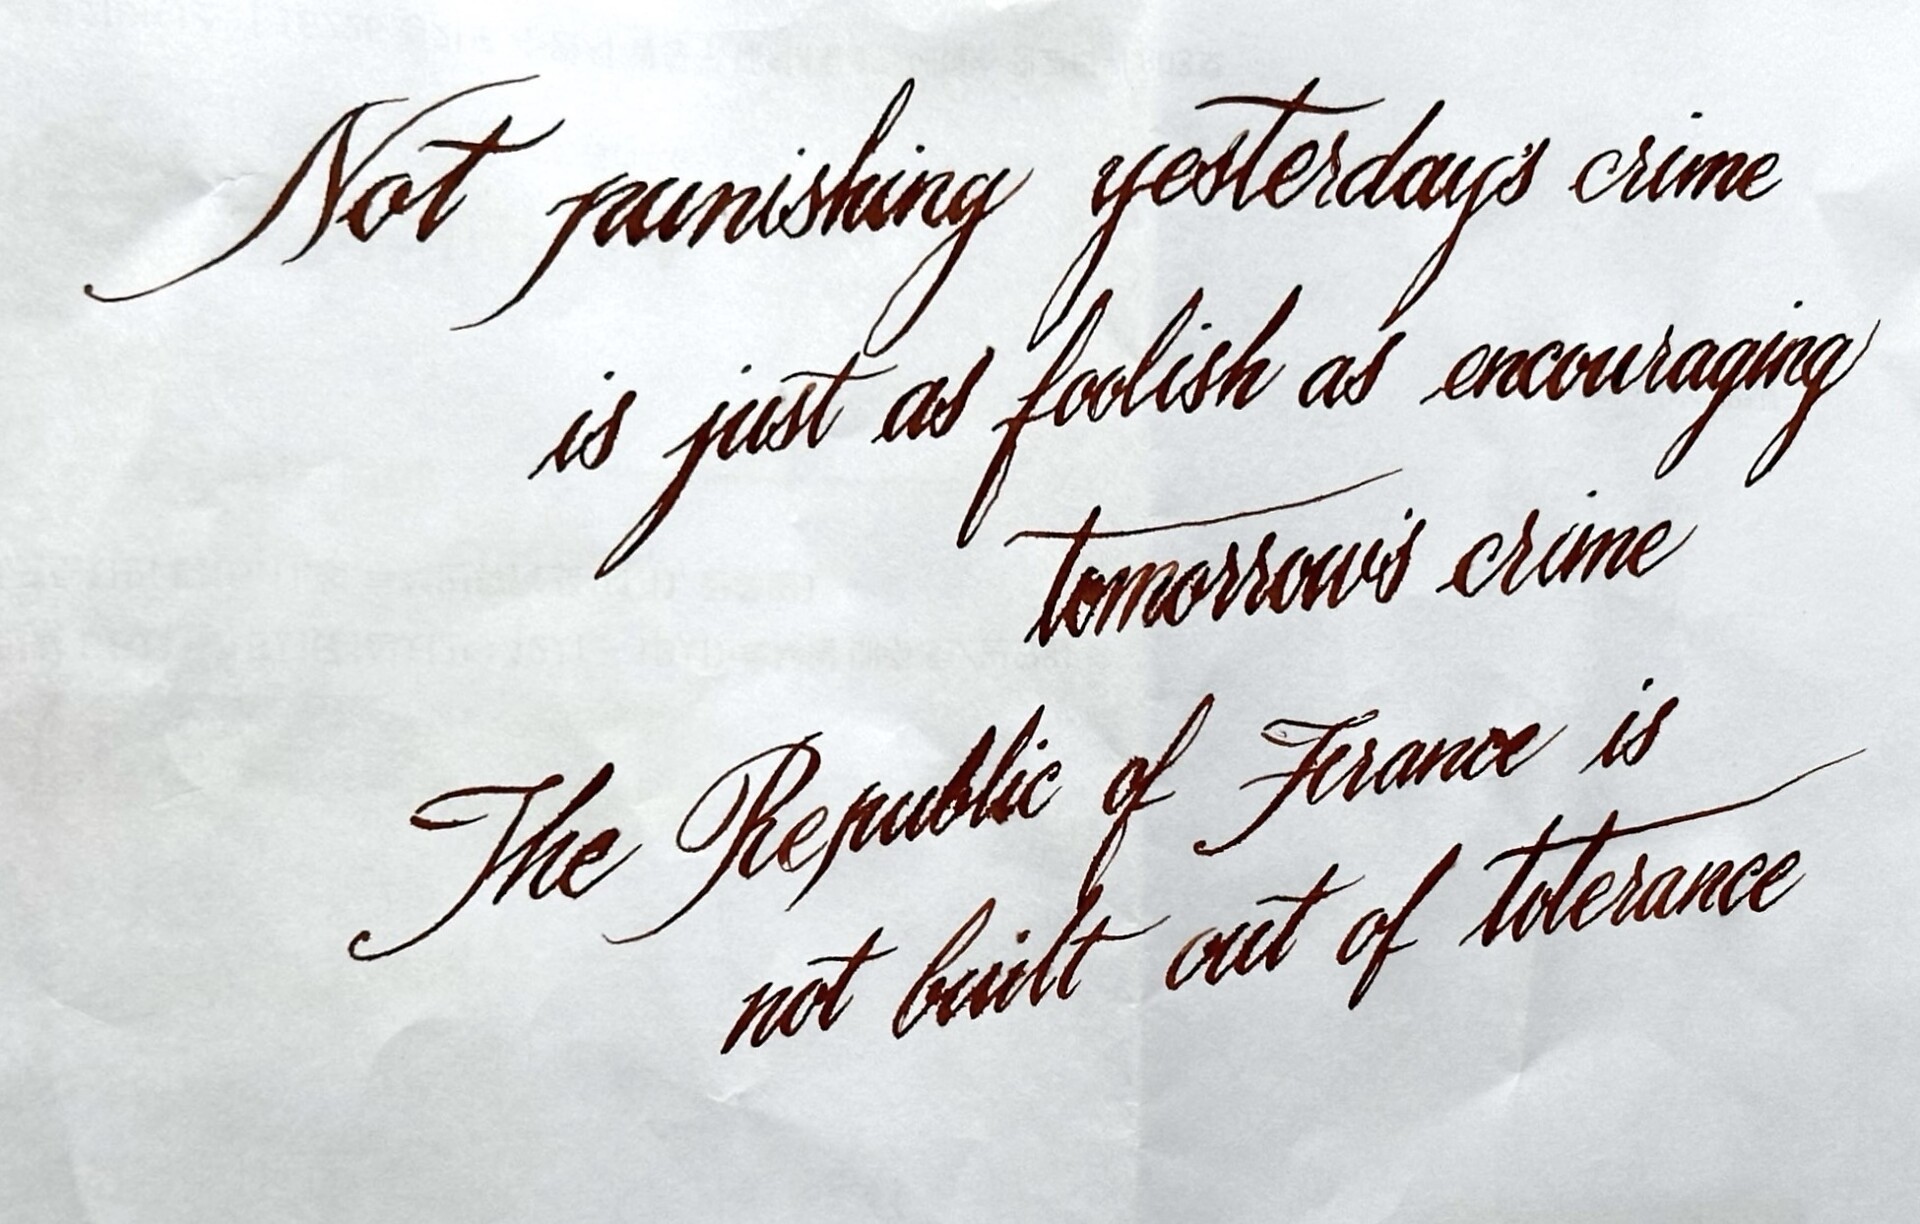 Not punishing yesterday's crime
is just as foolish as encouraging
tomorrow's crime
The Republic of France is
not built out of tolerance